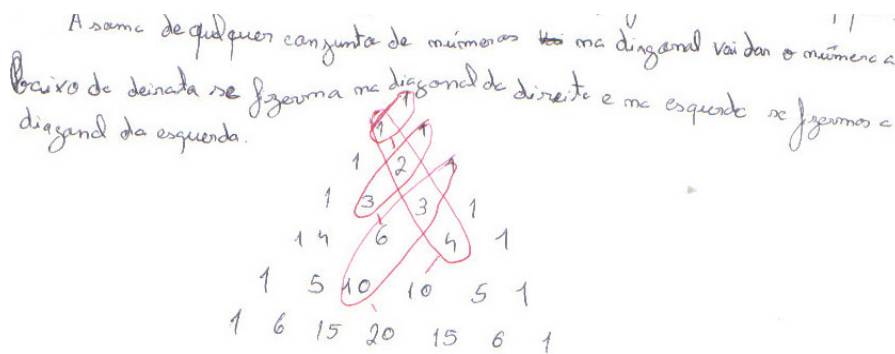 A soma de qualquer conjunto de números na diagonal vai dar o número a
baixo da deirata se fizerma na diagonal da direita e na esquerda se fizermos a
diagonal da esquerda.
1
1 1
1 2 1
1 3 3 1
1 4 6 4 1
1 5 10 10 5 1
1 6 15 20 15 6 1